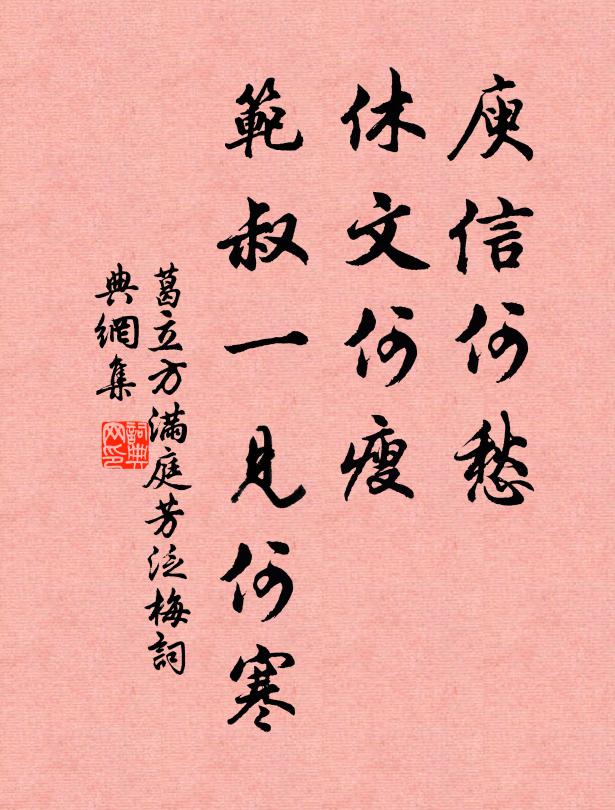 庾信何愁
休文何瘦
範叔一見何寒
葛立方满庭芳泛梅詞
典網集
詞典網印